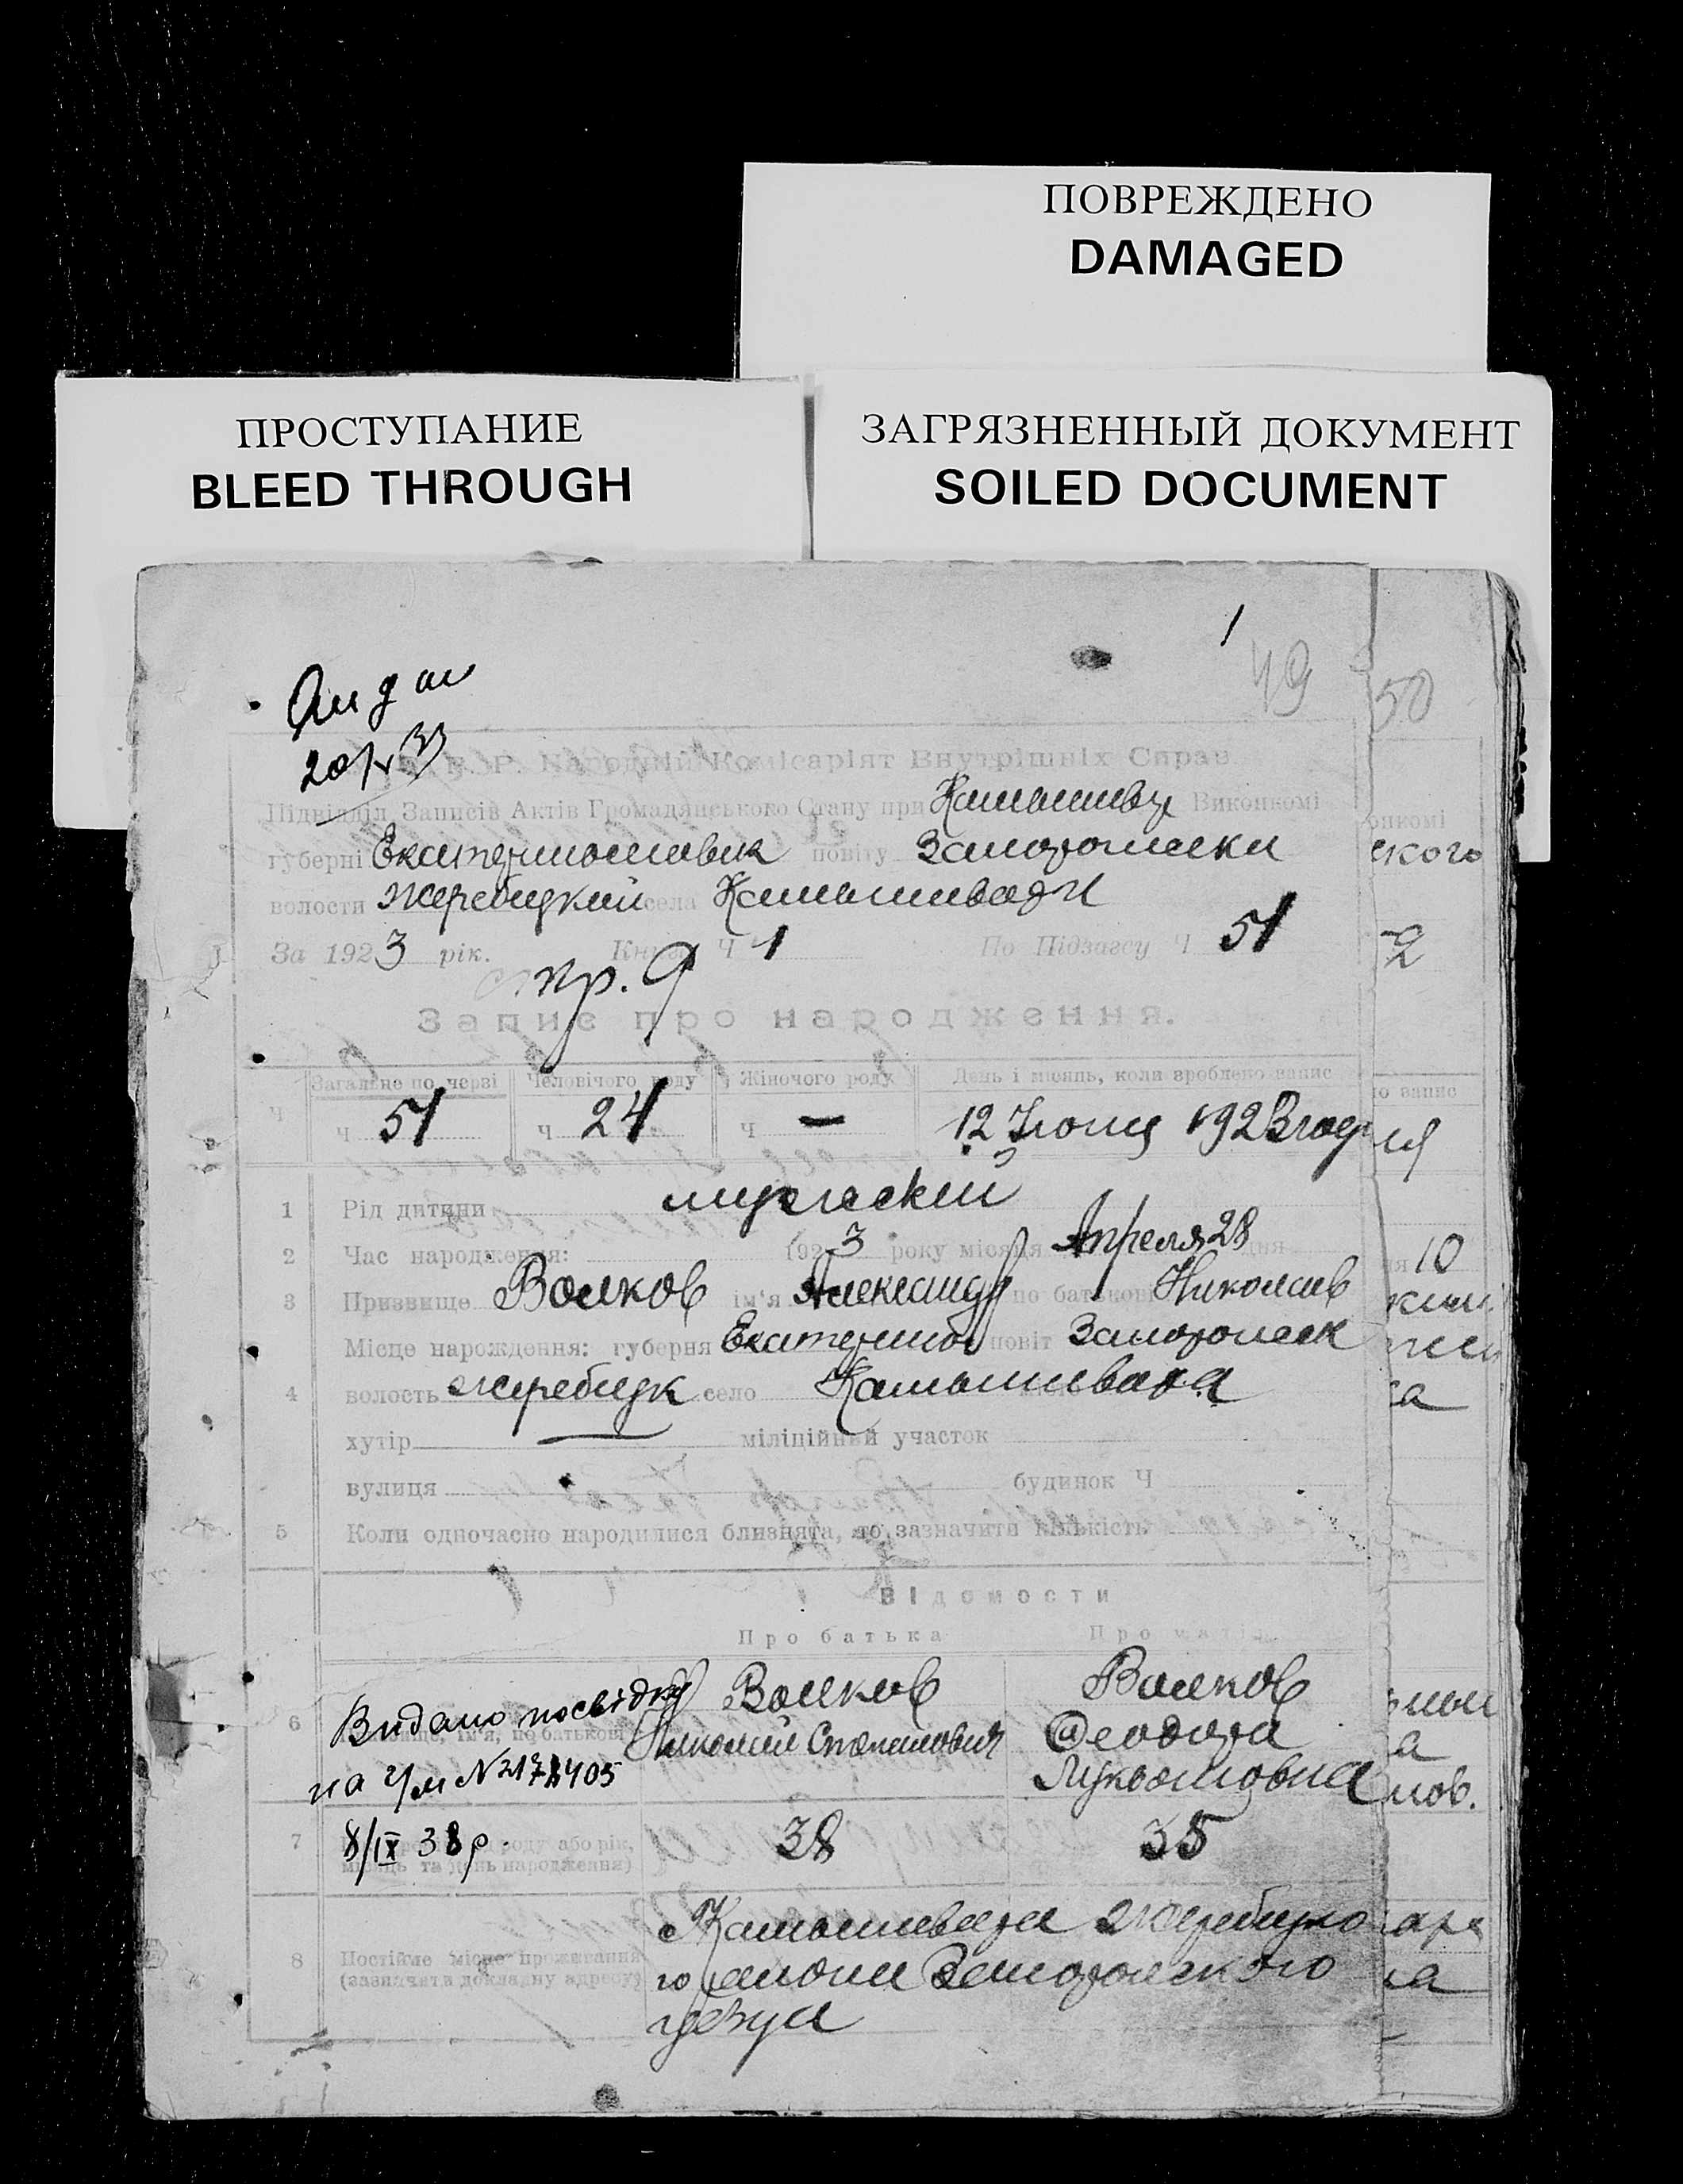 ПОВРЕЖДЕНО
DAMAGED
ПРОСТУПАНИЕ
BLEED THROUGH
ЗАГРЯЗНЕННЫЙ ДОКУМЕНТ
SOILED DOCUMENT
1
49
50
20/V 33
Р. Народній Комісаріят Внутрішніх Справ
Підвідділ Записів Актів Громадянського Стану при Виконкомі
губерні Екатеринославск повіту Запорожски
волости Жеребецкий села Камышевахи
За 1923 рік. Книга Ч 1 По Підзагсу Ч 51
стр. 9
Запис про народження.
Загальне по черзі Человічого роду Жіночого роду День і місяць, коли зроблено запис
Ч Ч 51 Ч 24 Ч — 12 Июня 1923 год
1 Рід дитини мужеский
2 Час народження: 1923 року місяця Апреля 28 дня
3 Призвище Волков ім'я Александр по батькові Николаев
Місце народження: губерня Екатеринос повіт Запорожск
4 волость Жеребецк село Камышеваха
хутір — міліційний участок
вулиця будинок Ч
5 Коли одночасно народилися близнята, то зазначити кількість
Відомости
Про батька Про матір
6 Видано посвідку Волков Волков
Николай Феодора
на Ум N
7 8/IX 38 р. 38 35
місяць та день народження)
8 Постійне місце проживання Камышеваха Жеребецко
(зазначити докладну адресу) го Запорожского
уезда